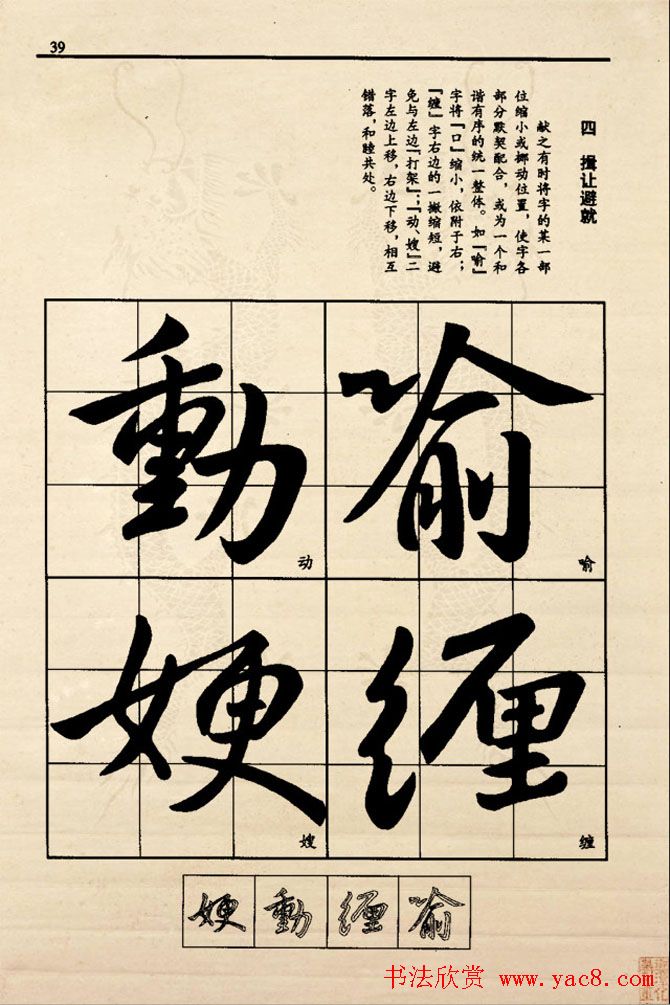 39
四 揖让避就
献之有时将字的某一部
位缩小或挪动位置，使字各
部分默契配合，或为一个和
谐有序的统一整体。如『喻』
字将『口』缩小，依附于右；
『缠』字右边的一撇缩短，避
免与左边『打架』；『动、嫂』二
字左边上移，右边下移，相互
错落，和睦共处。
喻
喻
動
动
缠
缠
嫂
喻
缠
動
书法欣赏 www.yac8.com